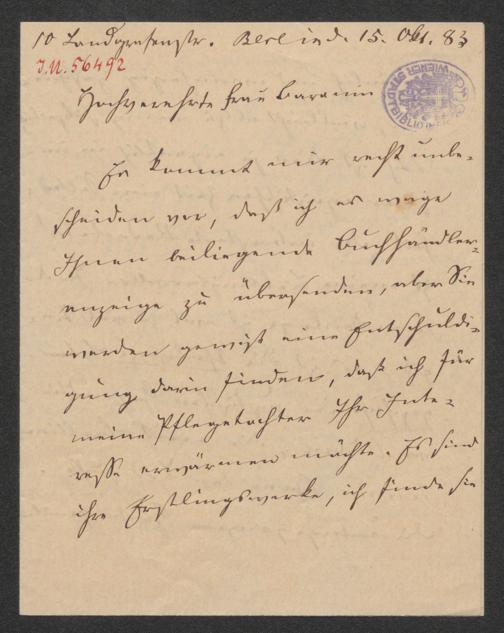 10 Landgrafenstr. Berlin d. 15. Okt. 83
I.N. 56492
WIENER STADTBIBLIOTHEK
Hochverehrte Frau Baronin
Es kommt mir recht unbe-
scheiden vor, daß ich es wage
Ihnen beiliegende Buchhändler-
anzeige zu übersenden, aber Sie
werden gewiß eine Entschuldi-
gung darin finden, daß ich für
meine Pflegetochter Ihr Inte-
resse erwärmen möchte. Es sind
ihre Erstlingswerke, ich finde sie